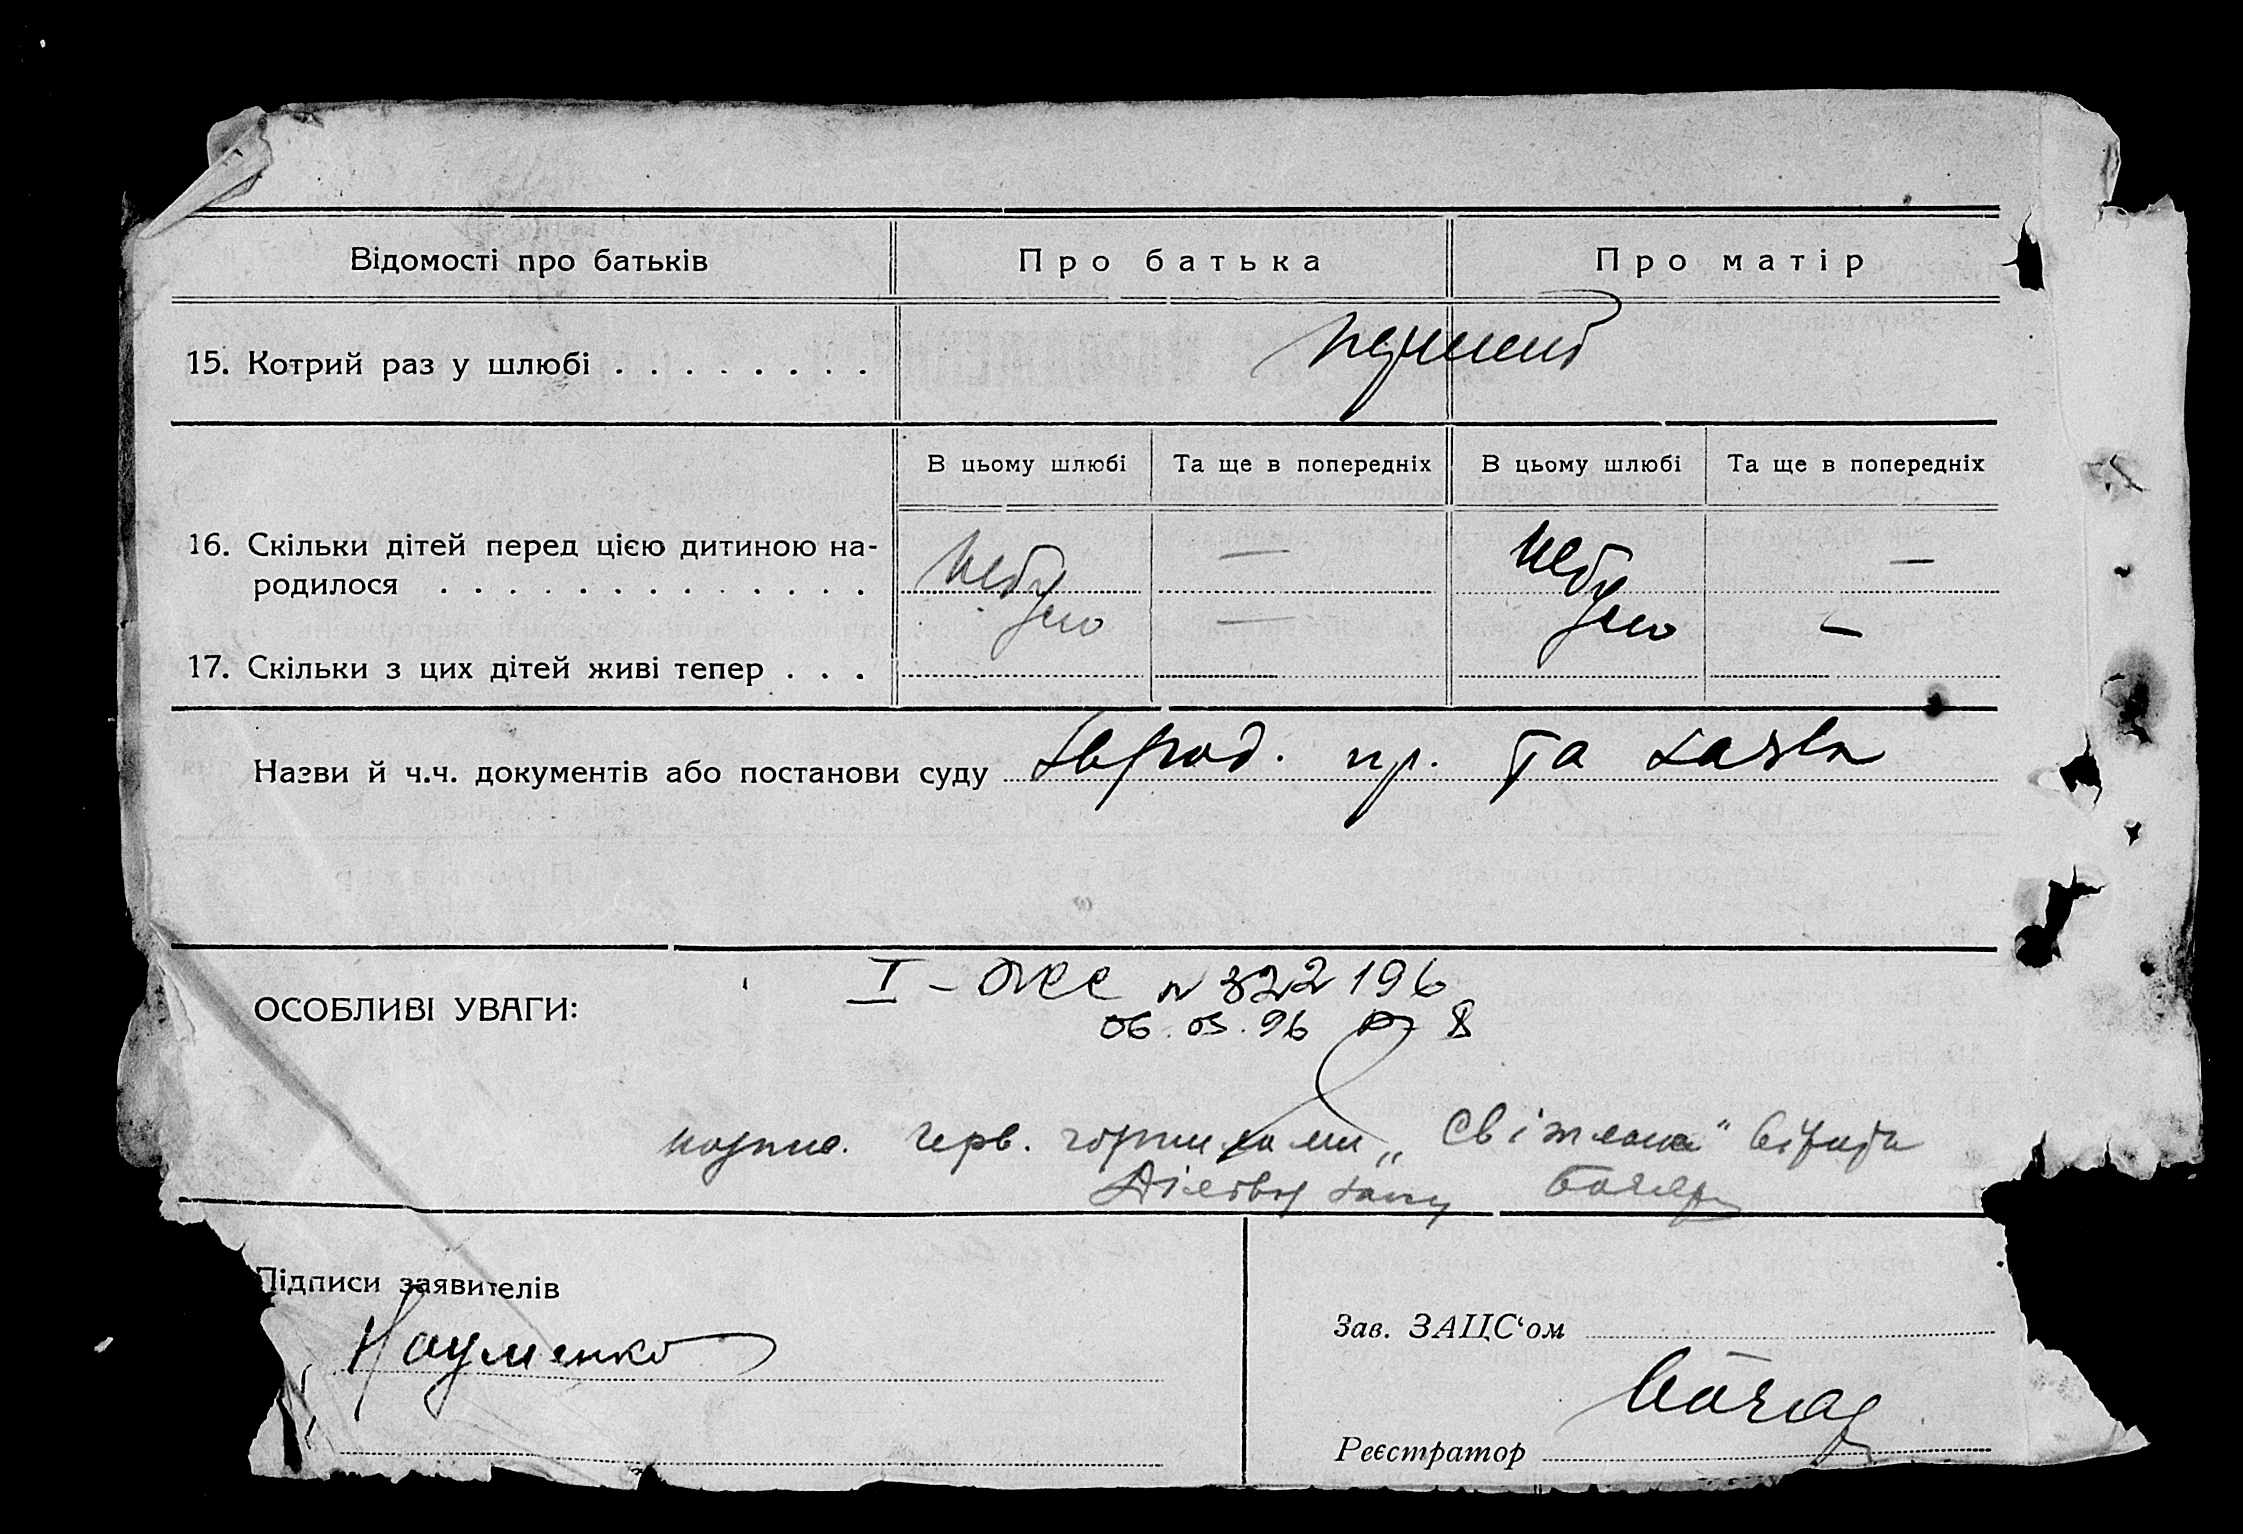 Відомості про батьків Про батька Про матір
15. Котрий раз у шлюбі . . . . . . . . перший
В цьому шлюбі Та ще в попередніх В цьому шлюбі Та ще в попередніх
16. Скільки дітей перед цією дитиною на-
родилося . . . . . . . . . . . . . небу — небу —
ло — ло —
17. Скільки з цих дітей живі тепер . . .
Назви й ч.ч. документів або постанови суду пр. та заява
ОСОБЛИВІ УВАГИ:
I – № 322196
06.05.96
черв. чорнилами „Світлана" вірити
Діловод загсу Бочар
Підписи заявителів
Науменко
Зав. ЗАЦС'ом
Бочар
Реєстратор